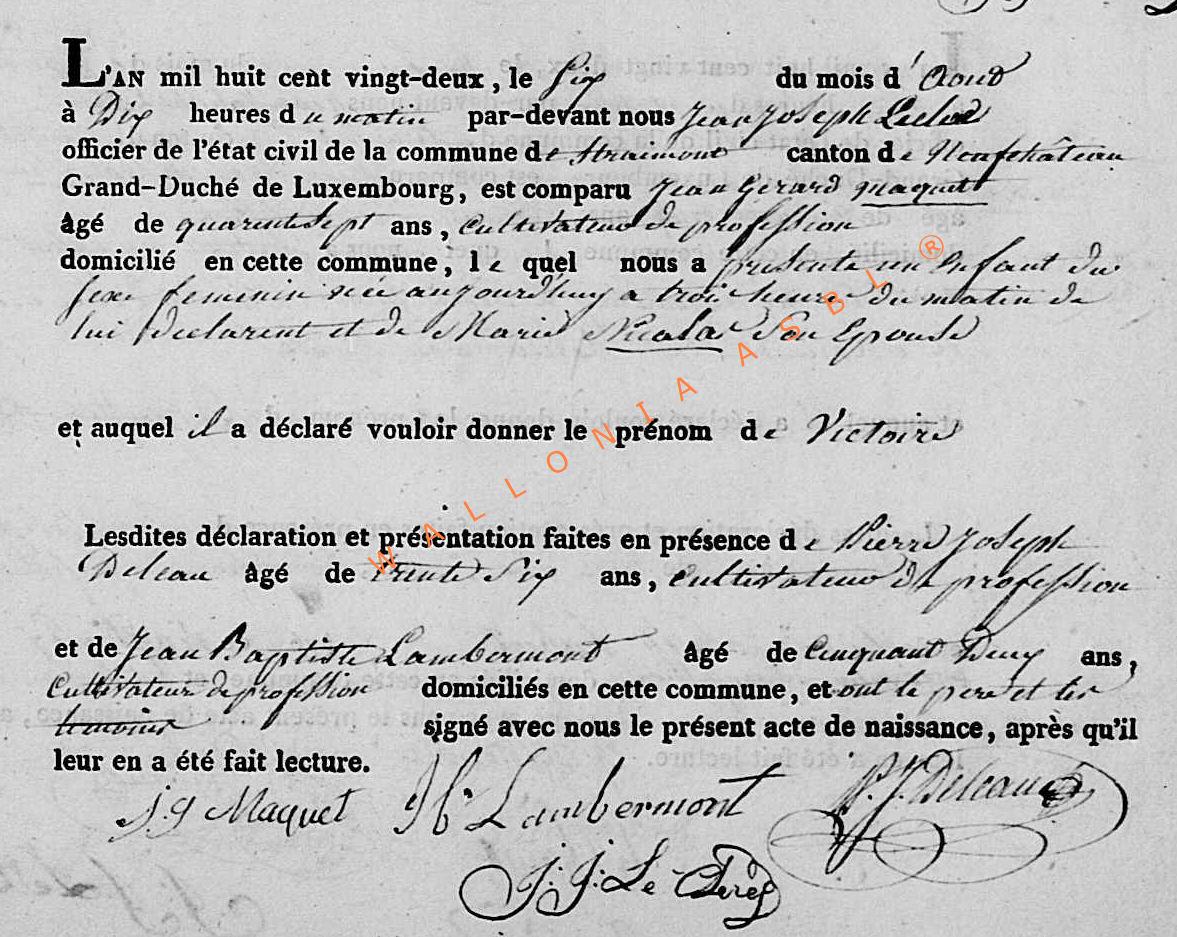 L'AN mil huit cent vingt-deux, le Six du mois d'Aout
à Dix heures du matin par-devant nous Jean Joseph
officier de l'état civil de la commune de Straimont canton de Neufchâteau
Grand-Duché de Luxembourg, est comparu Jean Gerard Maquet
âgé de quarente Sept ans, Cultivateur de profession
domicilié en cette commune, le quel nous a presenté un Enfant du
sexe feminin née aujourd'huy a trois heures du matin de
lui Declarent et de Marie Nicolas Son Epouse
et auquel il a déclaré vouloir donner le prénom de Victoire
Lesdites déclaration et présentation faites en présence de Pierre Joseph
Deleau âgé de trente Six ans, Cultivateur de profession
et de Jean Baptiste Lambermont âgé de Cinquant Deux ans,
Cultivateur de profession domiciliés en cette commune, et ont le pere et les
temoins signé avec nous le présent acte de naissance, après qu'il
leur en a été fait lecture.
J. G Maquet Lambermont P. J. Deleau
J. J. Le Clerc
WALLONIA ASBL ®